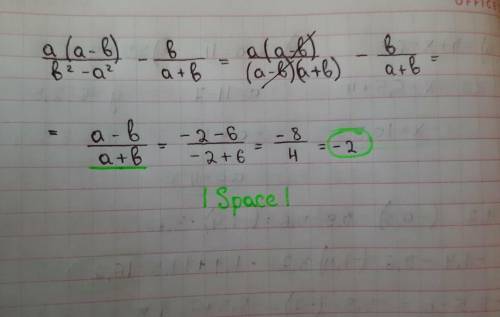 a(a-b)/b²-a² - b/a+b = a(a-b)/(a-b)(a+b) - b/a+b =
= a-b/a+b = -2-6/-2+6 = -8/4 = -2
| Space |